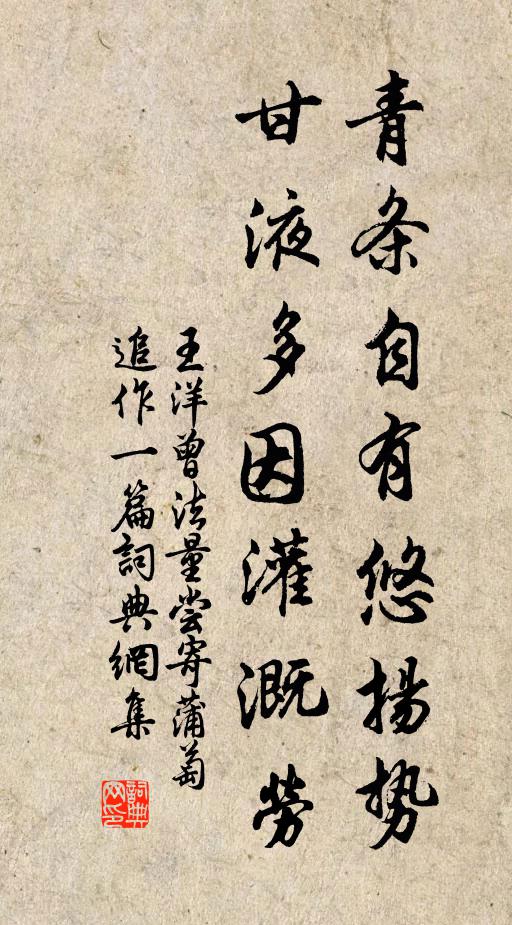 青条自有悠揚势
甘液多因灌溉勞
王洋曾法量尝寄蒲萄
追作一篇詞典網集
詞典网印